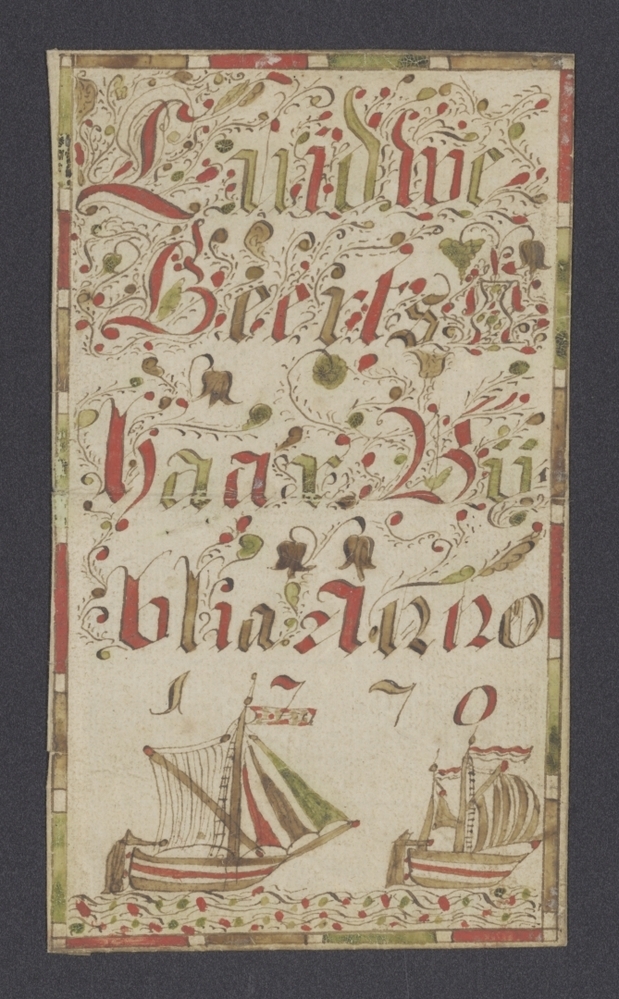 Laudwe
Beerts
haar Bü
blia Anno
1770